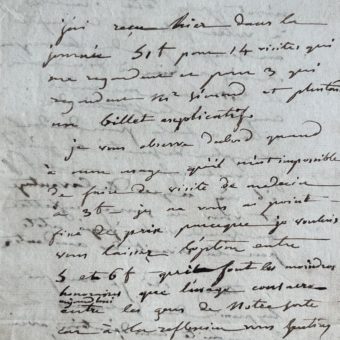 j'ai reçu hier dans la
journée 51f pour 14 visites qui
me regardent et pour 3 qui
regardent Mr et plutot
un billet explicatif.
je vous observe dabord quand
à mon usage qu'il m'est impossible
de faire de visite de medecin
à 3f je ne vous ai point
fixé de prix puisque je voulois
vous laisser l'option entre
5 et 6f qui font les moindres
honoraires que l'usage consacre
aujourd'hui
entre les gens de notre sorte
car à la reflexion vous